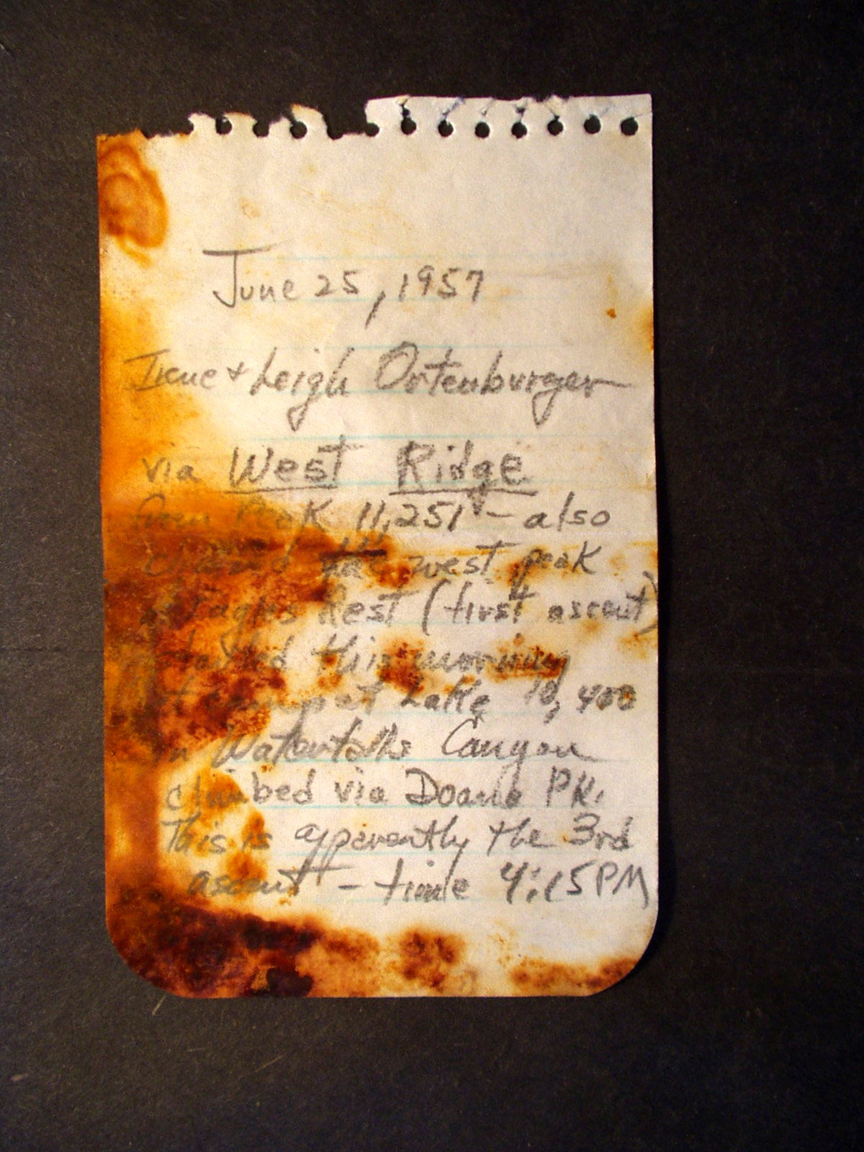 June 25, 1957
Irene + Leigh Ortenburger
via West Ridge
from Peak 11,251 - also
climbed the west peak
of Eagles Rest (first ascent)
started this morning
at camp at Lake 10,400
in Waterfalls Canyon
climbed via Doane PK.
This is apparently the 3rd
ascent - time 4:15 PM